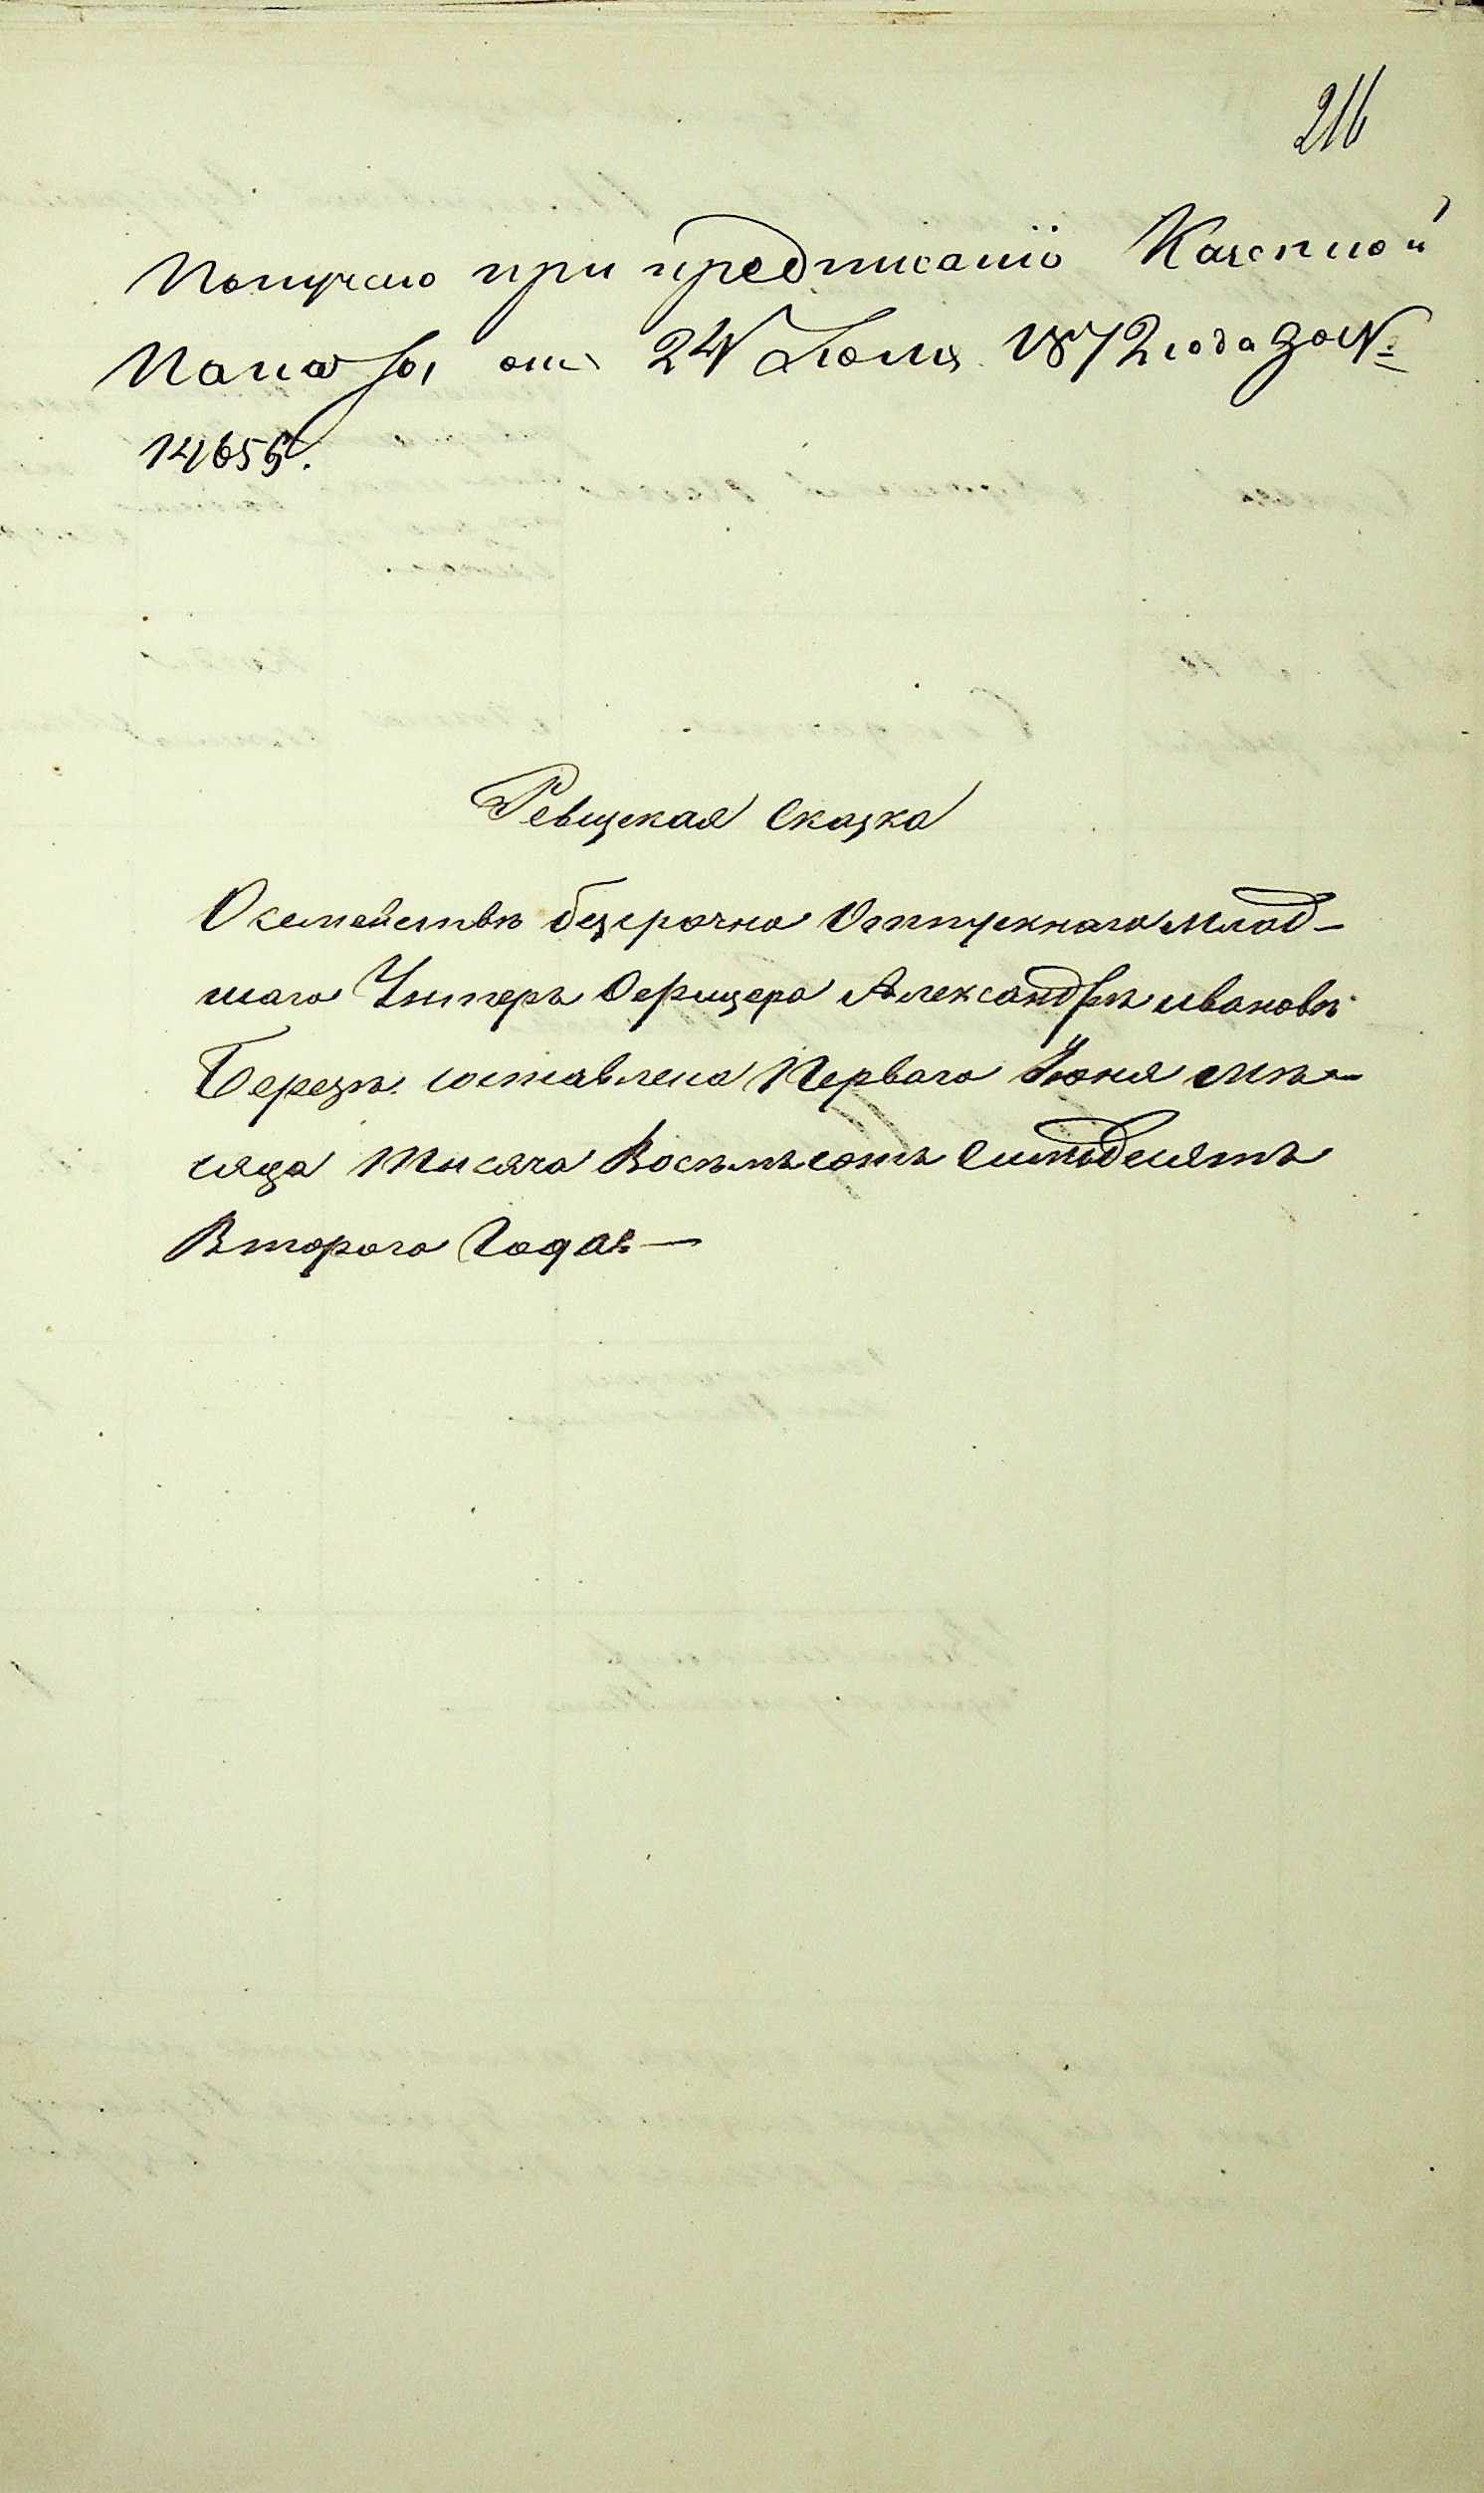 216
Получено при предписанію Казенной
Палаты отъ 24 Іюля 1872 года за №
14655.
Ревиская Сказка
О семействѣ безсрочно Отпускнаго млад-
шаго Унтеръ Офицера Александрѣ Ивановѣ
Березѣ составлена Перваго Іюня мѣ-
сяца Тысяча Восемьсотъ Симьдесятъ
Второго Года